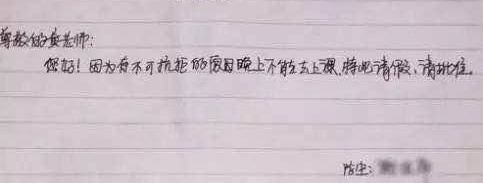 尊敬的吴老师:
您好!因为有不可抗拒的原因晚上不能去上课,特此请假,请批准。
学生: